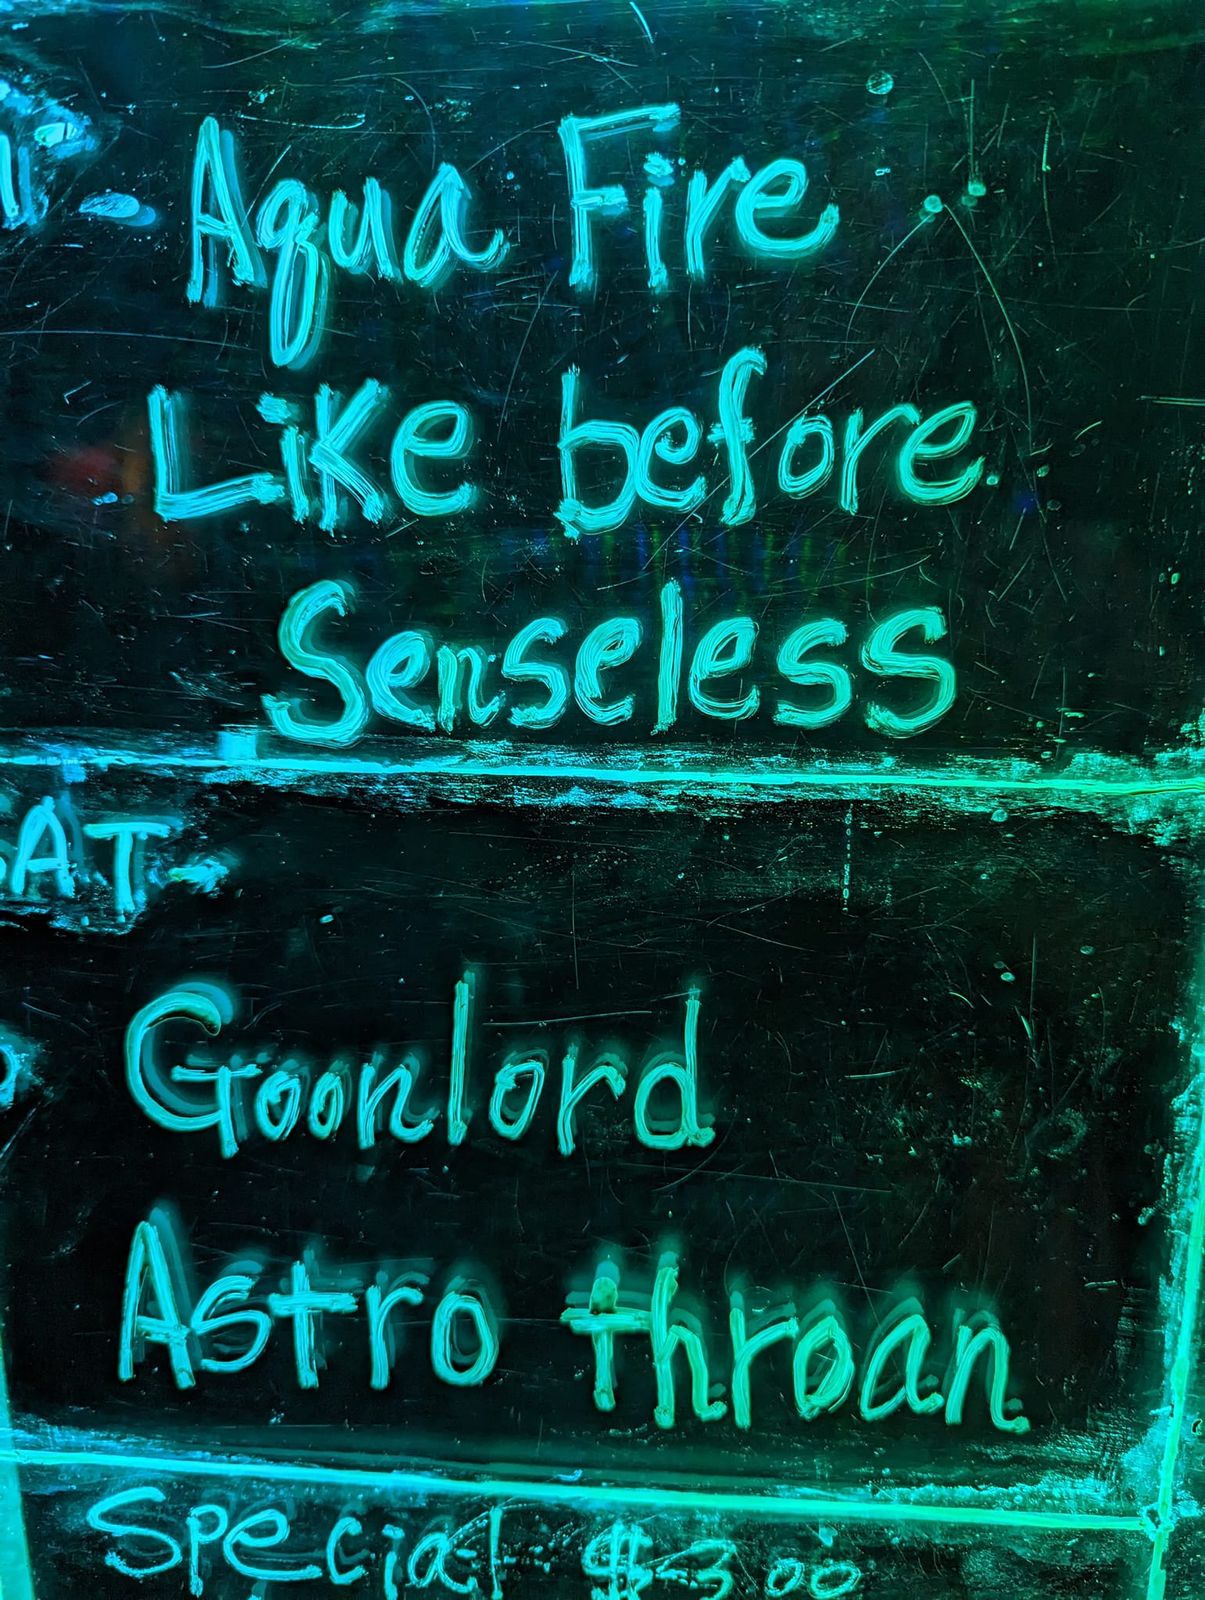 Aqua Fire
Like before
Senseless
SAT
Goonlord
Astro throan
Special $3.00